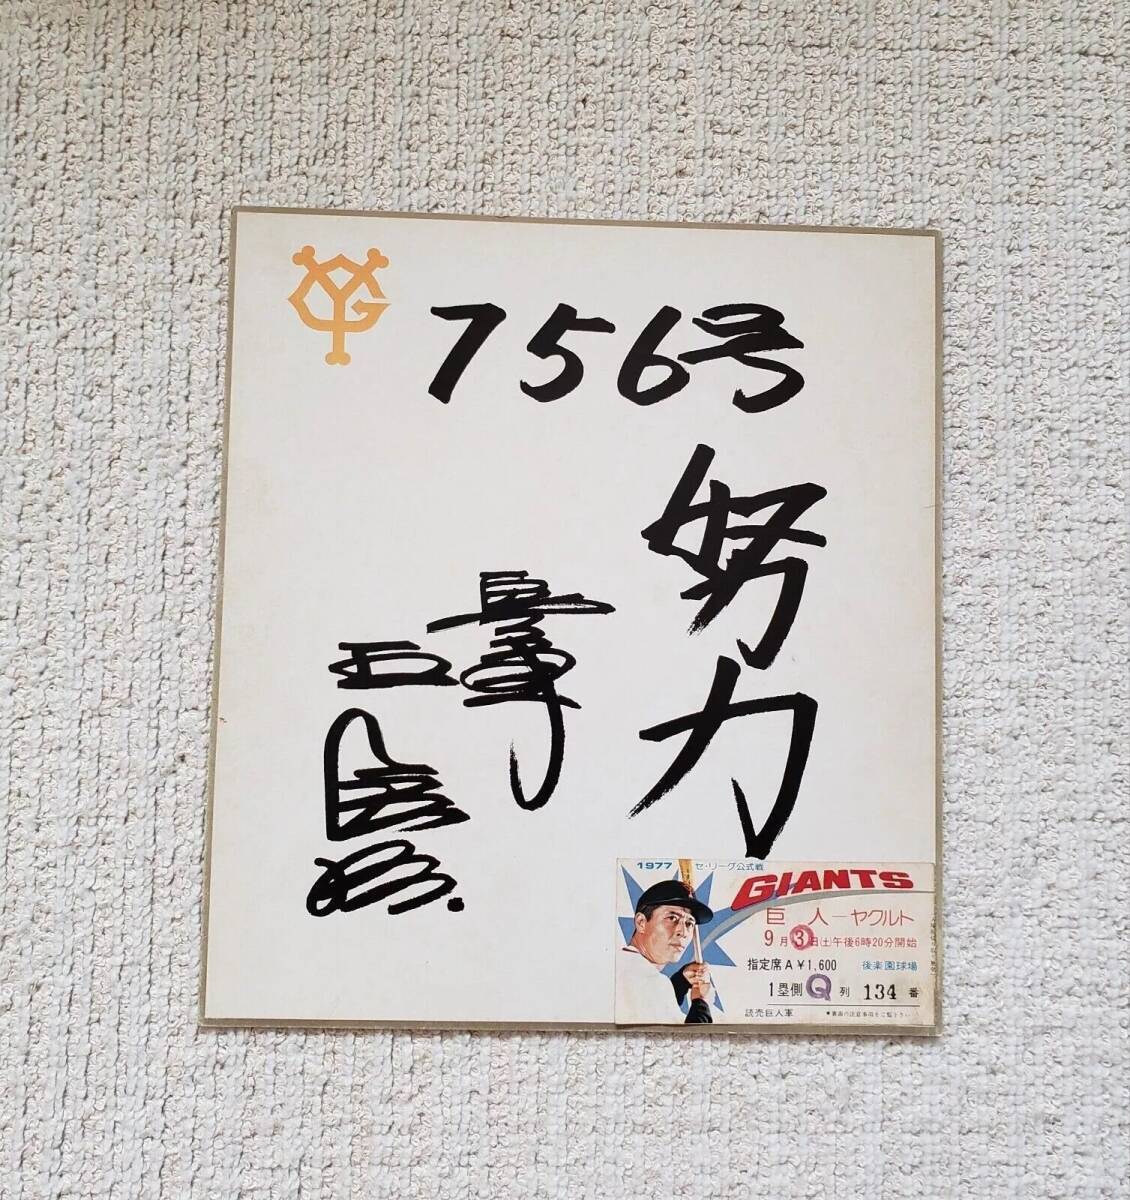 756号
努力
1977 セ・リーグ公式戦
GIANTS
巨人ーヤクルト
9月3日(土)午後6時20分開始
指定席A¥1,600 後楽園球場
1塁側 Q 列 134 番
読売巨人軍 ●裏面の注意事項をご覧下さい